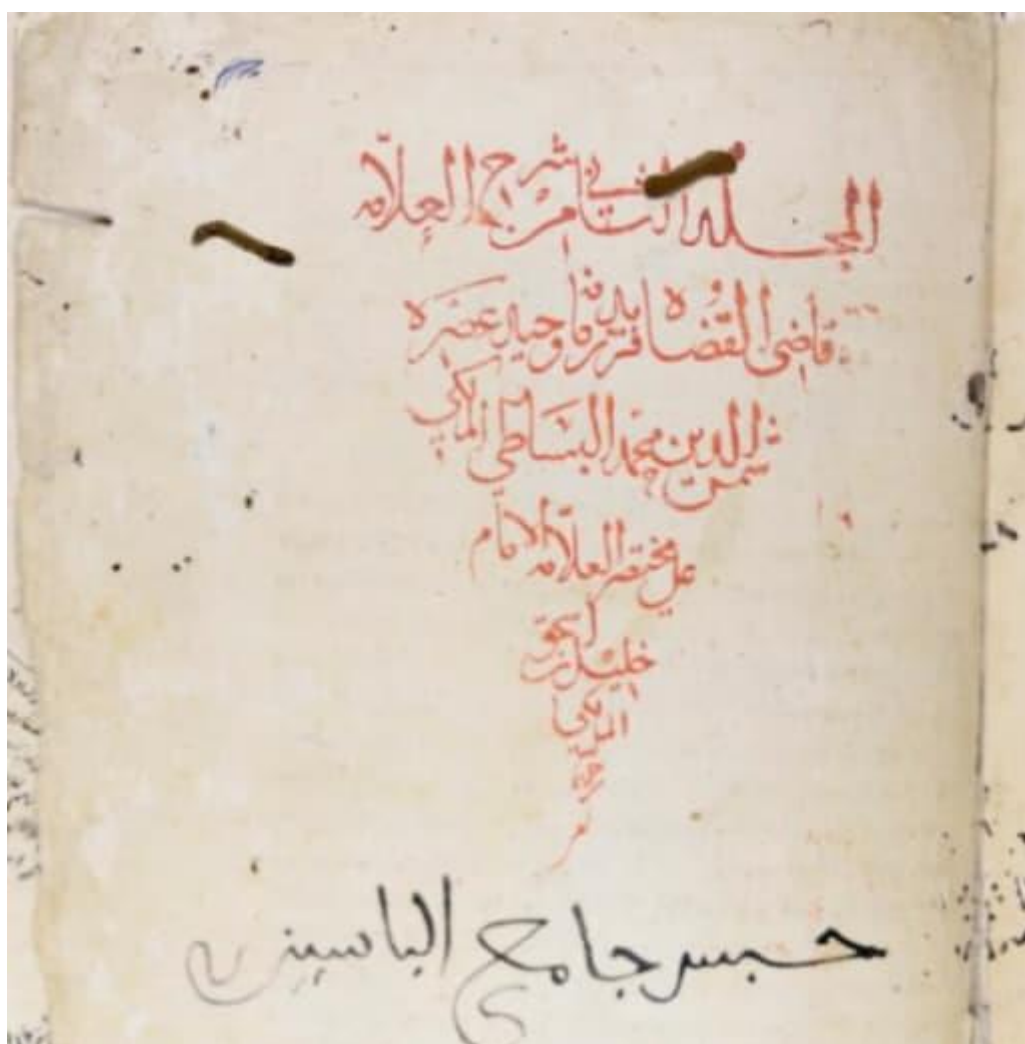 المجلد الثاني من شرح العلامه
قاضي القضاه فريد زمانه وحيد عصره
شمس الدين محمد البساطي المالكي
على مختصر العلامه الامام
خليل بن اسحق
المالكي
رحمه
حبس جامع الباسين